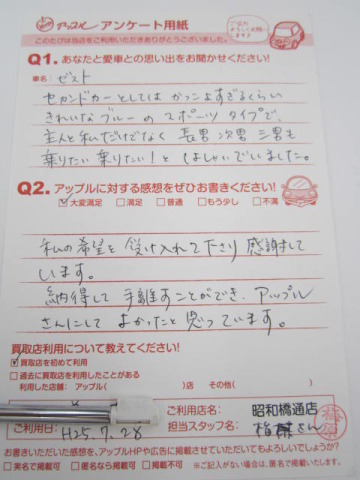 アップル アンケート用紙
ご協力
よろしくお願い
します!
このたびは当店をご利用いただきありがとうございました。
Q1. あなたと愛車との思い出をお聞かせください!
車名: ゼスト
セカンドカーとしては かっこよすぎるくらい
きれいな ブルーの スポーツ タイプで、
主人と私だけでなく 長男 次男 三男も
乗りたい 乗りたい! と はしゃいでいました。
Q2. アップルに対する感想をぜひお書きください!
☑大変満足 □満足 □普通 □もう少し □不満
私の希望を 受け入れて下さり 感謝して
います。
納得して 手離すことができ、アップル
さんにして よかったと 思っています。
買取店利用について教えてください!
☑買取店を初めて利用
□過去に買取店を利用したことがある
利用した店舗: アップル( )店 その他( )
ご利用日: H25.7.28
ご利用店名: 昭和橋通店
担当スタッフ名: さん
お書きいただいた感想を、アップルHPや広告に掲載させていただいてもよろしいでしょうか?
□実名で掲載可 □匿名なら掲載可 □掲載不可 ※ご記入がない場合は、匿名で掲載いたします。